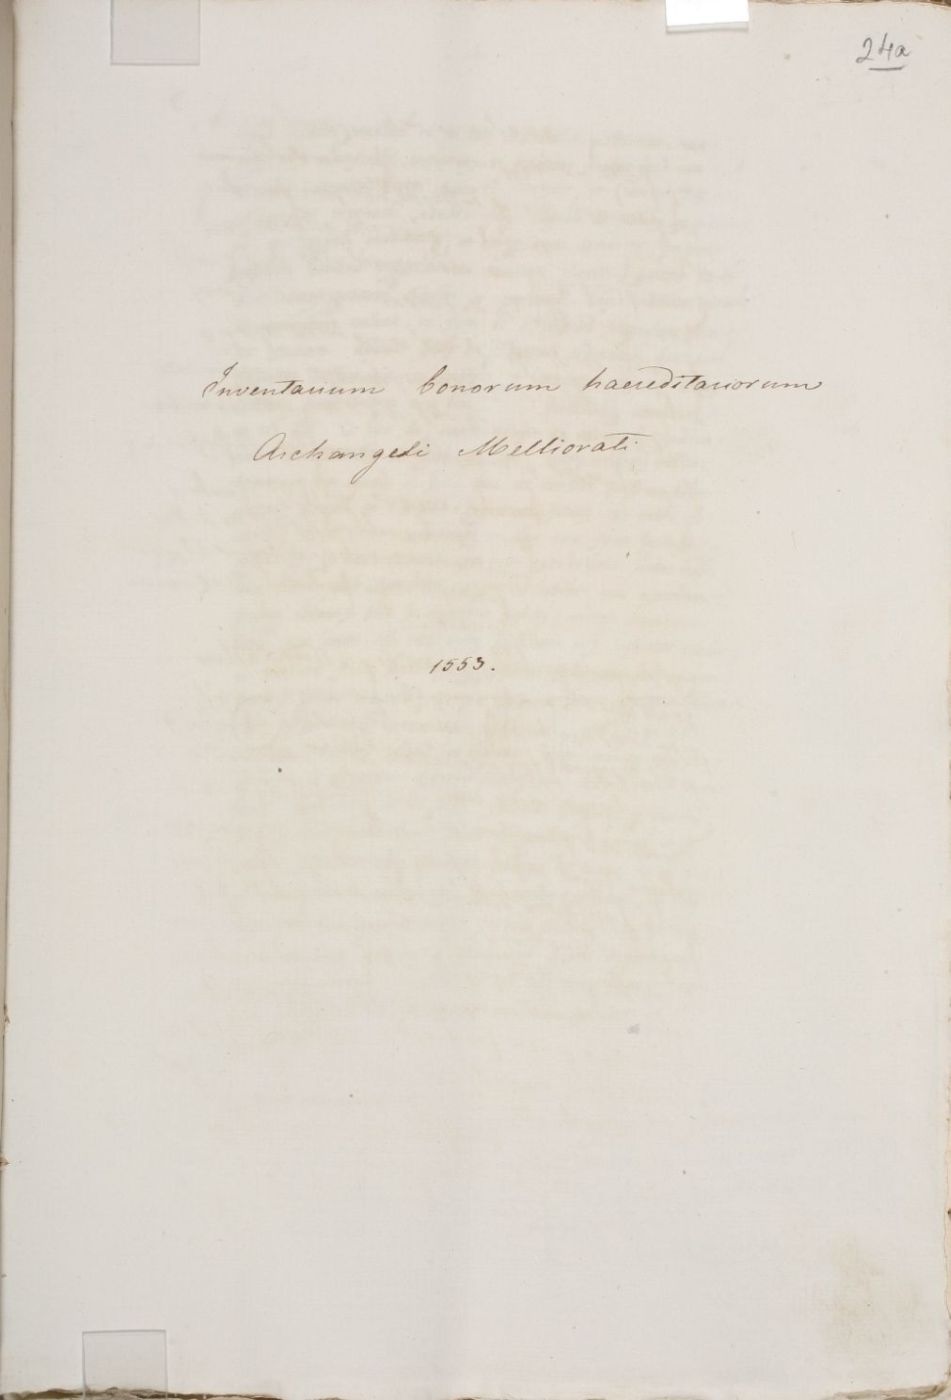 24a
Inventarium bonorum haereditariorum
Archangeli Melliorati
1553.